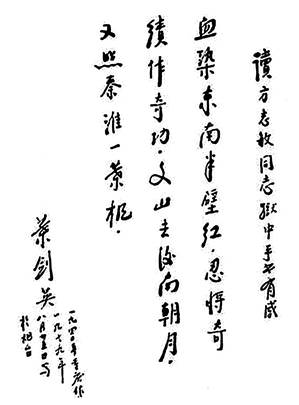 讀方志敏同志獄中手书有感
血染东南半壁紅。忍將奇
績作奇功。文山去後南朝月。
又照秦淮一葉楓。
葉剑英
一九四〇年重慶作
一九七九年
八月
於烟台